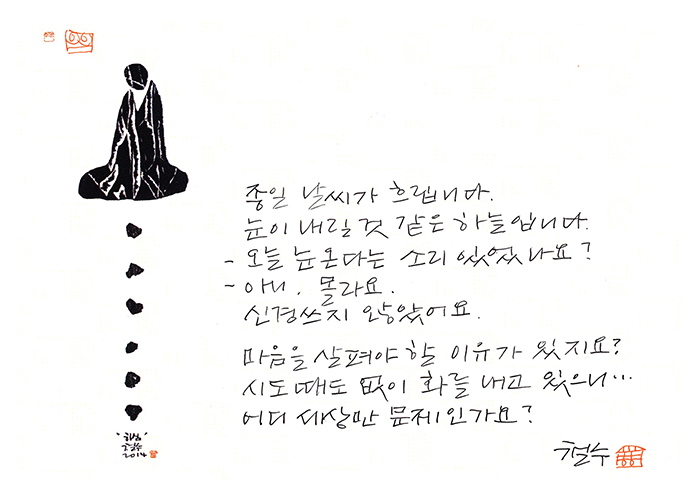 종일 날씨가 흐립니다.
눈이 내릴 것 같은 하늘입니다.
- 오늘 눈온다는 소리 있었나요?
- 아니, 몰라요.
신경쓰지 않았어요.
마음을 살펴야 할 이유가 있지요?
시도 때도 없이 화를 내고 있으니…
어디 세상만 문제인가요?
철수
철수
2014